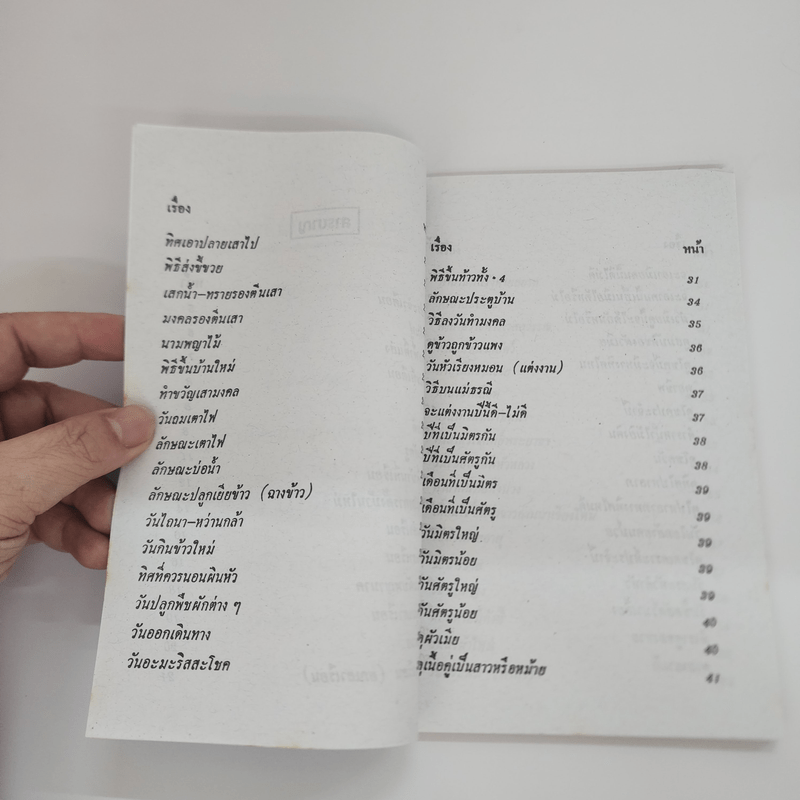 เรื่อง
ทิศเอาปลายเสาไป
พิธีส่งขี้ขวย
เสกน้ำ–ทรายรองตีนเสา
มงคลรองตีนเสา
นามพญาไม้
พิธีขึ้นบ้านใหม่
ทำขวัญเสามงคล
วันถมเตาไฟ
ลักษณะเตาไฟ
ลักษณะบ่อน้ำ
ลักษณะปลูกเยียข้าว (ฉางข้าว)
วันไถนา–หว่านกล้า
วันกินข้าวใหม่
ทิศที่ควรนอนผินหัว
วันปลูกพืชผักต่าง ๆ
วันออกเดินทาง
วันอะมะริสสะโชค
เรื่อง หน้า
พิธีขึ้นท้าวทั้ง · 4 31
ลักษณะประตูบ้าน 34
วิธีลงวันทำมงคล 35
ดูข้าวถูกข้าวแพง 36
วันหัวเรียงหมอน (แต่งงาน) 36
วิธีบนแม่ธรณี 37
จะแต่งงานปีนี้ดี–ไม่ดี 37
ปีที่เป็นมิตรกัน 38
ปีที่เป็นศัตรูกัน 38
เดือนที่เป็นมิตร 39
เดือนที่เป็นศัตรู 39
วันมิตรใหญ่ 39
วันมิตรน้อย 39
วันศัตรูใหญ่ 39
วันศัตรูน้อย 40
ผัวเมีย 40
เนื้อคู่เป็นสาวหรือหม้าย 41